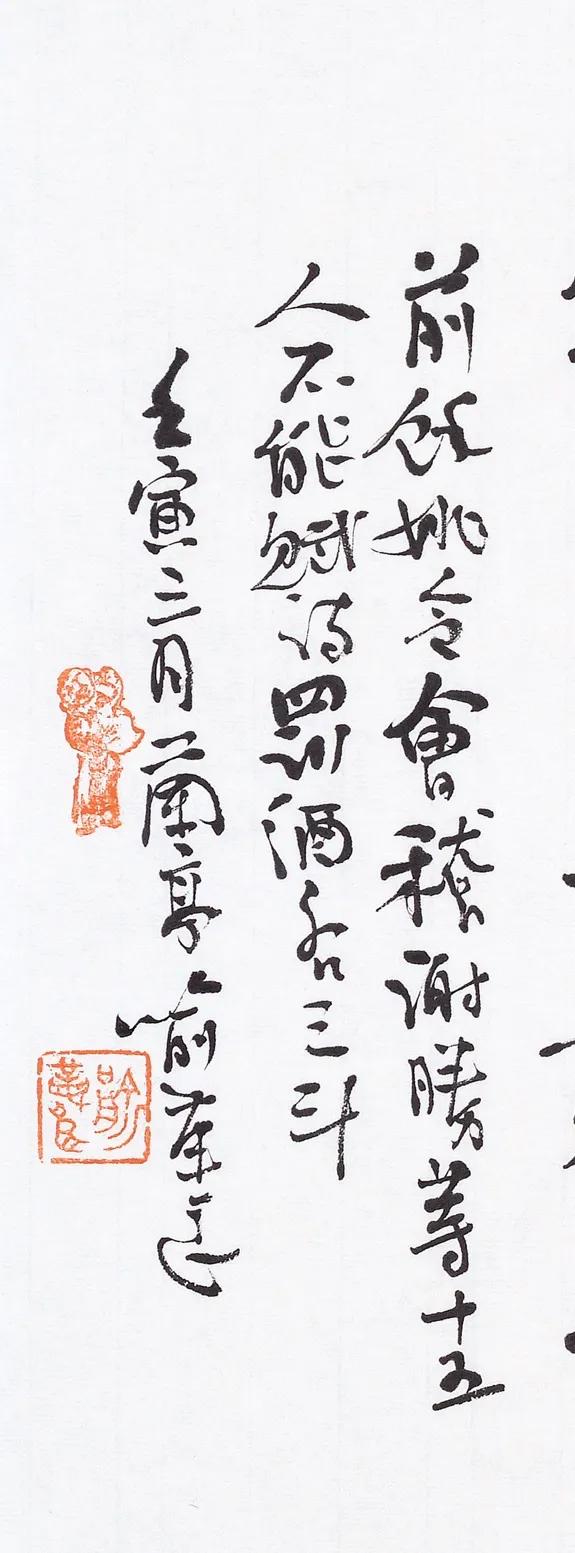 前餘姚令會稽謝勝等十五
人不能賦詩罰酒各三斗
壬寅三月蘭亭喻革良
喻革良